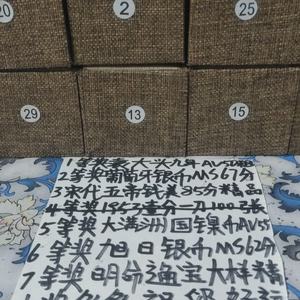 20
2
25
29
13
15
1等奖袁大头九年AU50
2等奖葡萄牙银币MS67分
3宋代五帝钱美85分精品
4等奖1957壹分一刀100张
5等奖大满洲国镍币AU55
6等奖旭日银币MS62分
7等奖明命通宝大样精